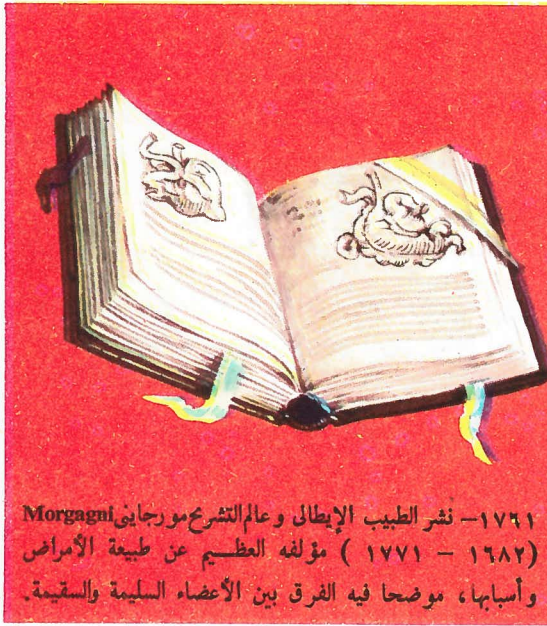 ١٧٦١ – نشر الطبيب الإيطالى و عالم التشريح مورجاينى Morgagni
(١٦٨٢ – ١٧٧١ ) مؤلفه العظـــيم عن طبيعة الأمراض
وأسبابها، موضحا فيه الفرق بين الأعضاء السليمة والسقيمة.